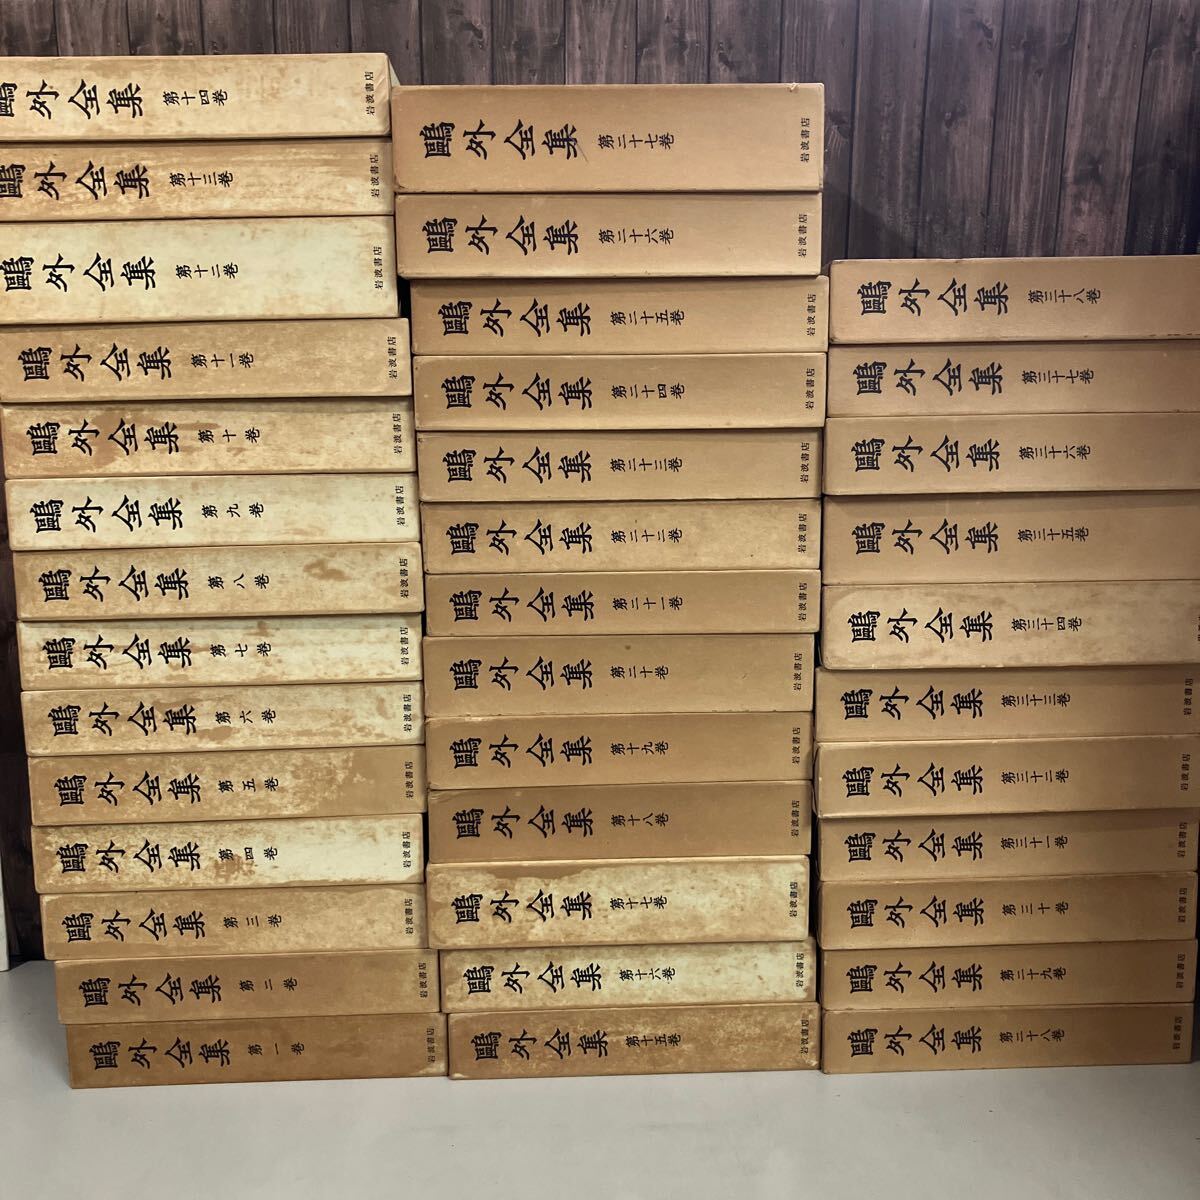 鷗外全集 第十四巻 岩波書店
鷗外全集 第十三巻 岩波書店
鷗外全集 第十二巻 岩波書店
鷗外全集 第十一巻 岩波書店
鷗外全集 第十巻 岩波書店
鷗外全集 第九巻 岩波書店
鷗外全集 第八巻 岩波書店
鷗外全集 第七巻 岩波書店
鷗外全集 第六巻 岩波書店
鷗外全集 第五巻 岩波書店
鷗外全集 第四巻 岩波書店
鷗外全集 第三巻 岩波書店
鷗外全集 第二巻 岩波書店
鷗外全集 第一巻 岩波書店
鷗外全集 第二十七巻 岩波書店
鷗外全集 第二十六巻 岩波書店
鷗外全集 第二十五巻 岩波書店
鷗外全集 第二十四巻 岩波書店
鷗外全集 第二十三巻 岩波書店
鷗外全集 第二十二巻 岩波書店
鷗外全集 第二十一巻 岩波書店
鷗外全集 第二十巻 岩波書店
鷗外全集 第十九巻 岩波書店
鷗外全集 第十八巻 岩波書店
鷗外全集 第十七巻 岩波書店
鷗外全集 第十六巻 岩波書店
鷗外全集 第十五巻 岩波書店
鷗外全集 第三十八巻
鷗外全集 第三十七巻
鷗外全集 第三十六巻
鷗外全集 第三十五巻
鷗外全集 第三十四巻
鷗外全集 第三十三巻 岩波書店
鷗外全集 第三十二巻 岩波書店
鷗外全集 第三十一巻 岩波書店
鷗外全集 第三十巻 岩波書店
鷗外全集 第二十九巻 岩波書店
鷗外全集 第二十八巻 岩波書店